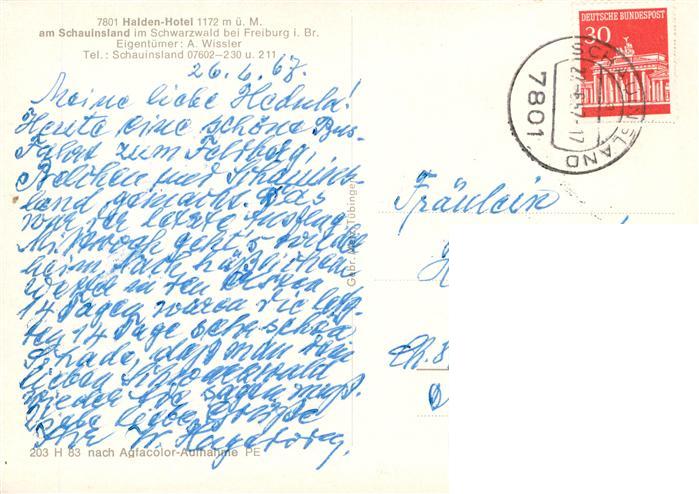 7801 Halden-Hotel 1172 m ü. M.
am Schauinsland im Schwarzwald bei Freiburg i. Br.
Eigentümer: A. Wissler
Tel.: Schauinsland 07602–230 u. 211
26.6.67.
Meine liebe Hedula!
Heute eine schöne Bus-
Fahrt zum Feldberg,
Belchen und Schauins-
land gemacht. Das
war der letzte Ausflug
Mittwoch geht's wieder
heim. Nach häßlichem
Wetter in den ersten
14 Tagen waren die letz-
ten 14 Tage sehr schön
Schade, daß man dem
lieben Schwarzwald
wieder ade sagen muß.
Viele liebe Grüße
Ihre
203 H 83 nach Agfacolor-Aufnahme PE
Gebr. Metz Tübingen
DEUTSCHE BUNDESPOST
30
SCHAUINSLAND
7801
Fräulein